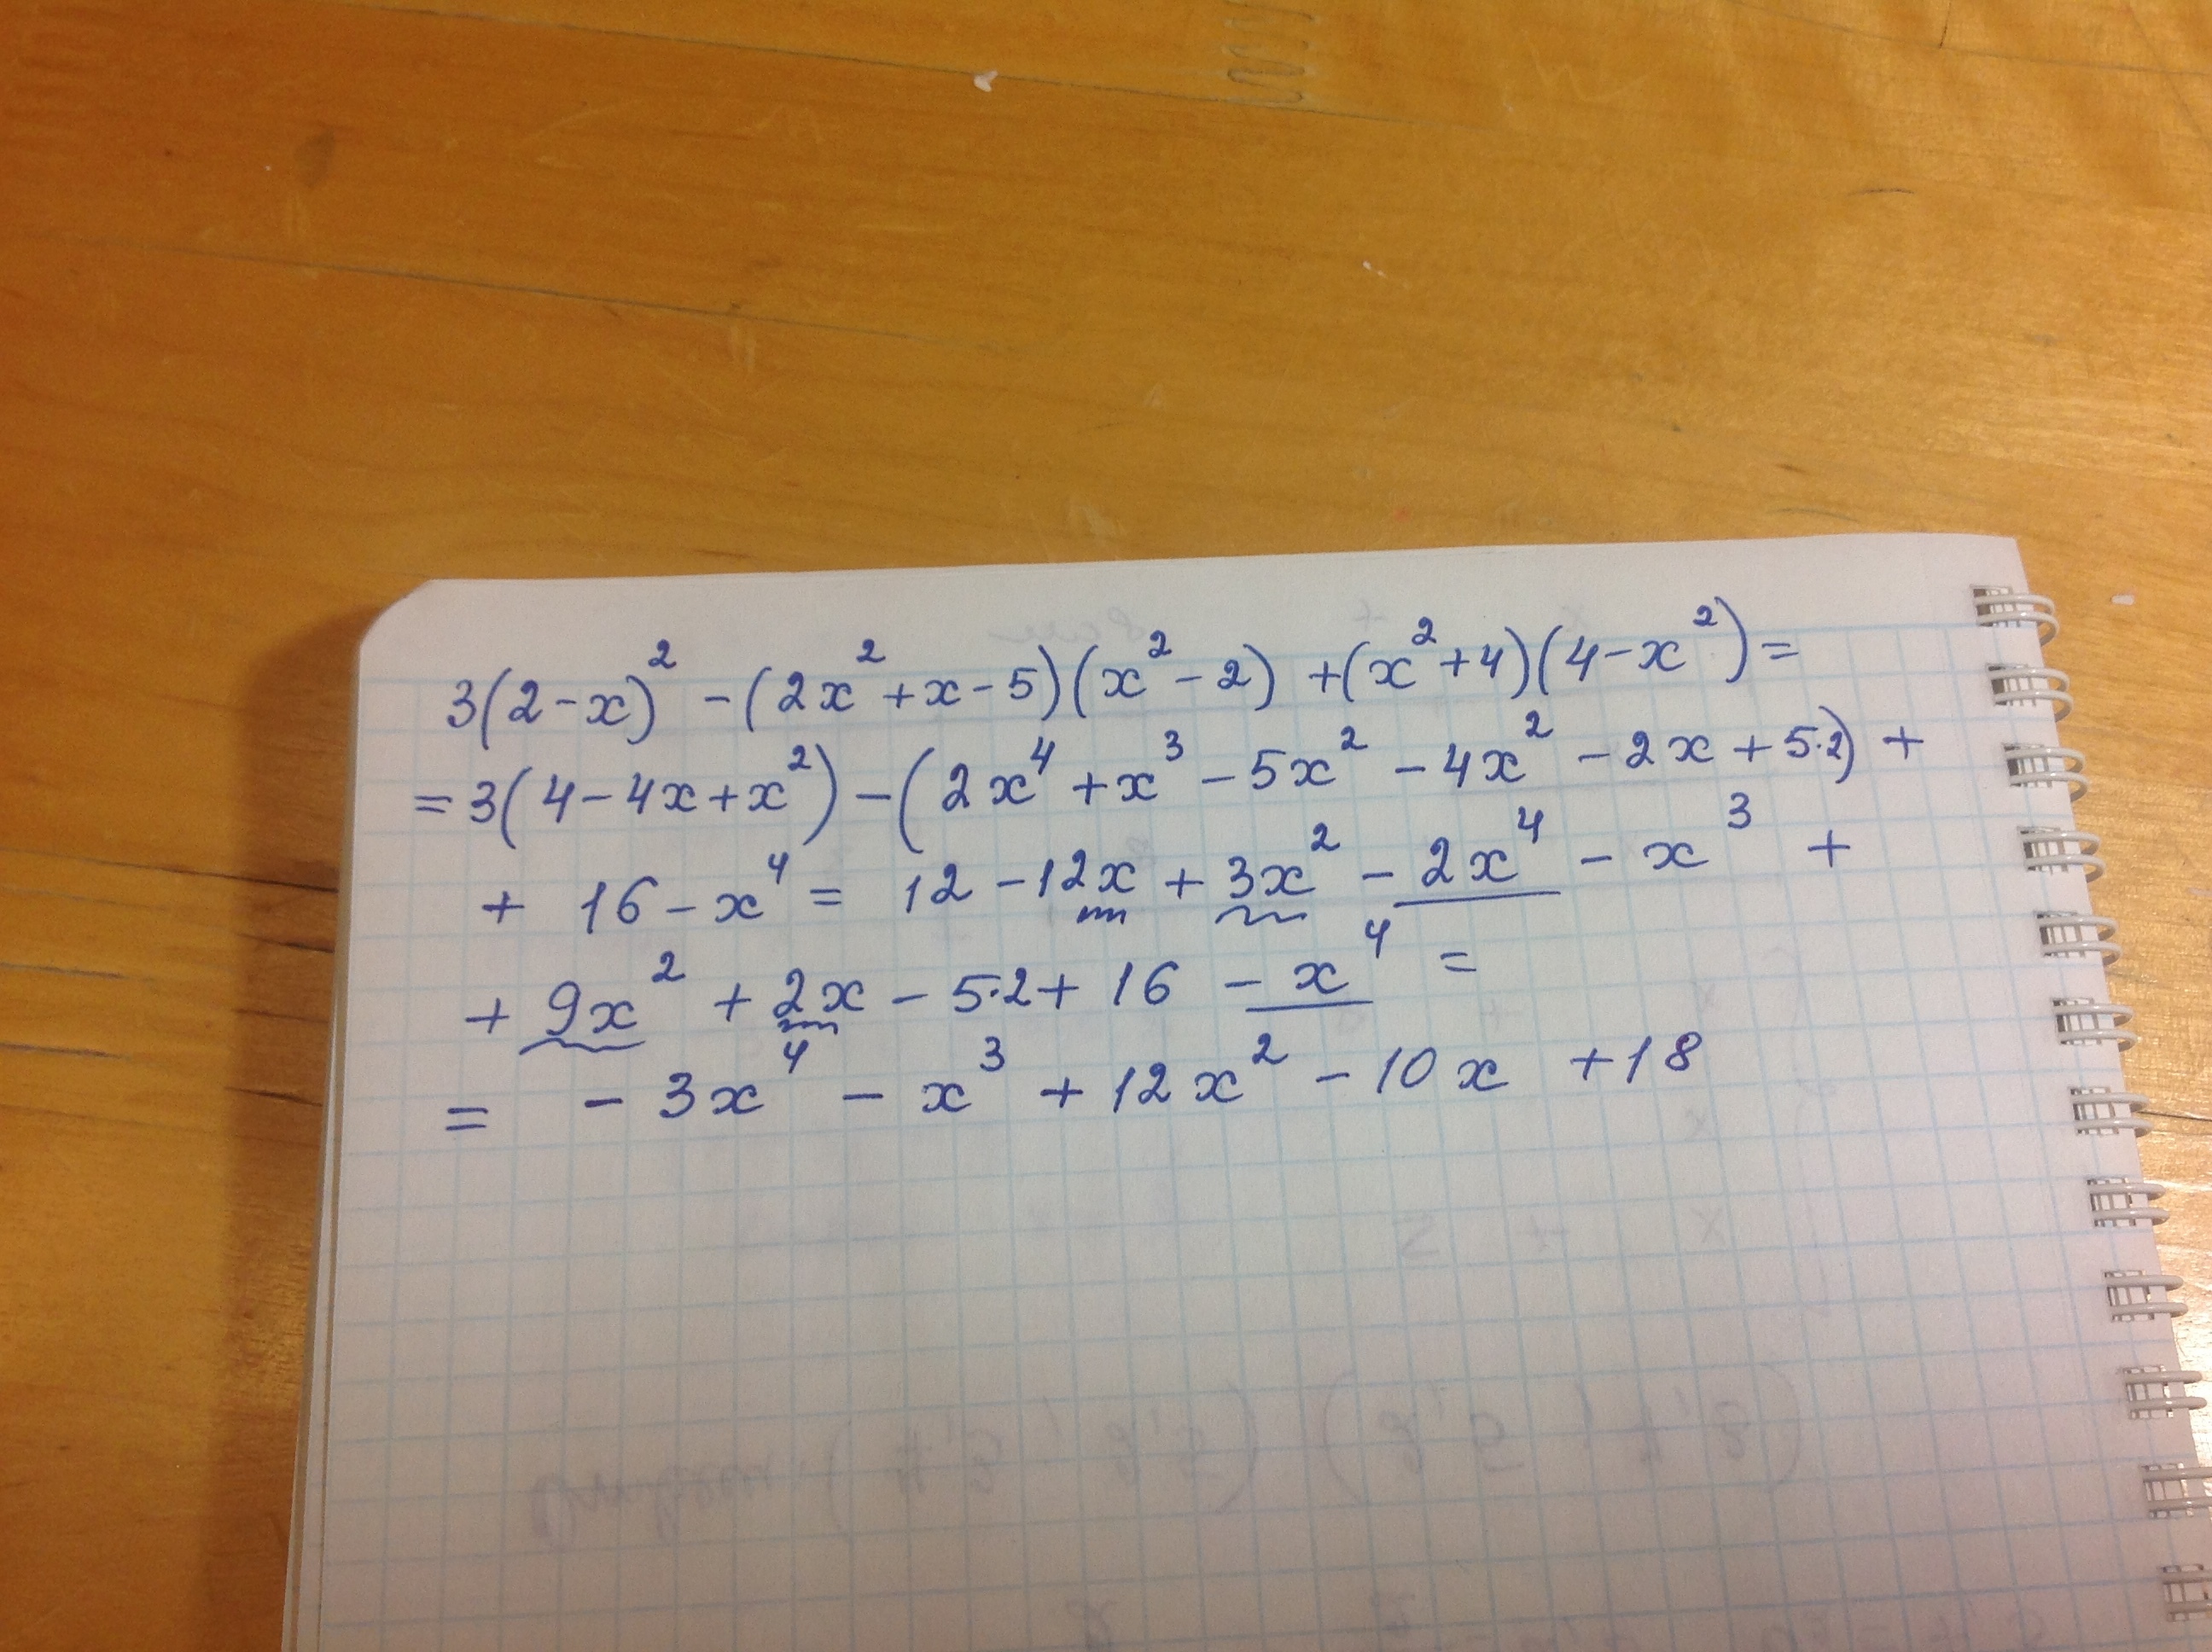 3(2-x)² -(2x²+x-5)(x²-2) +(x²+4)(4-x²)=
=3(4-4x+x²)-(2x⁴+x³-5x²-4x²-2x+5·2)+
+ 16-x⁴= 12-12x+3x²-2x⁴-x³ +
+ 9x² +2x-5·2+16 -x⁴ =
= -3x⁴ -x³ +12x²-10x +18